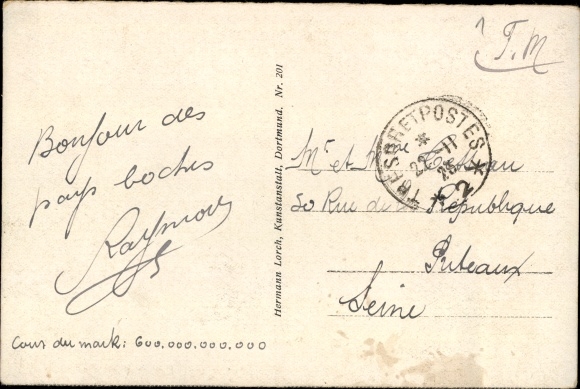 F.M
Bonjour des
pays boches
Raymond
Cours du mark: 600.000.000.000
Hermann Lorch, Kunstanstalt, Dortmund. Nr. 201
TRESOR ET POSTES
22-11
23
* 2 *
Mr et Mme
50 Rue de la République
Puteaux
Seine